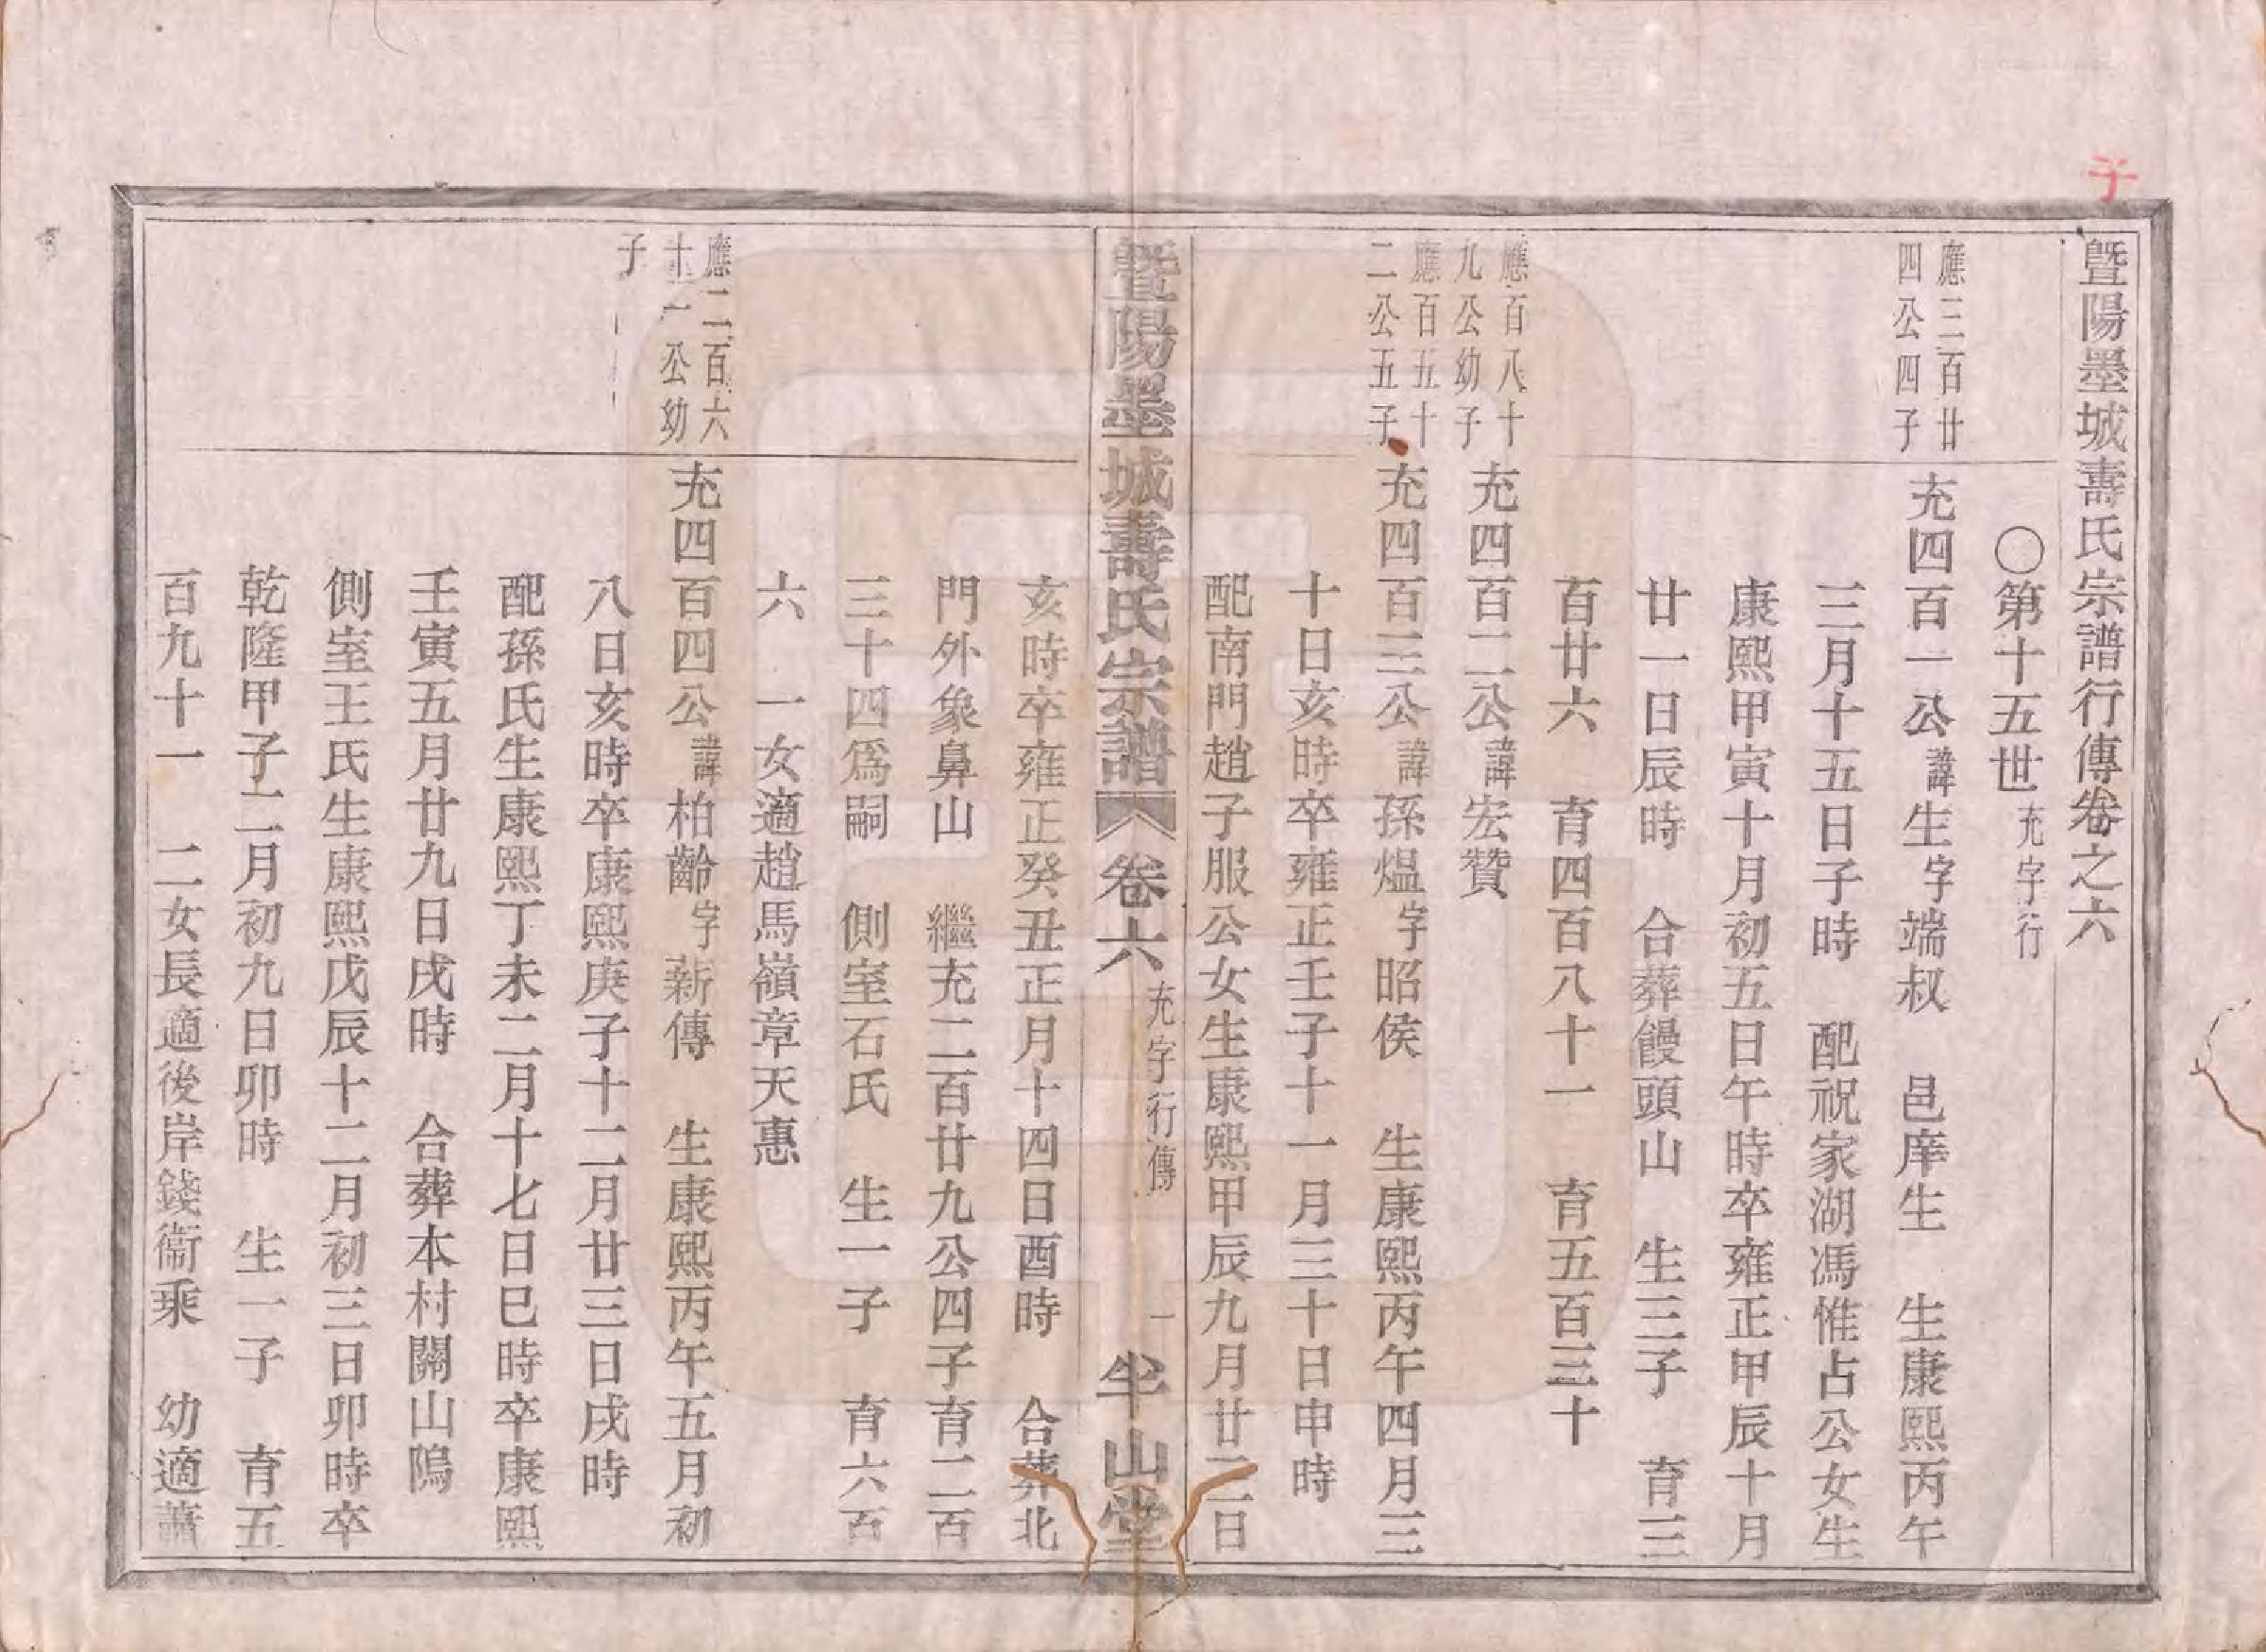 子
暨陽墨城壽氏宗譜行傳卷之六
〇第十五世充字行
應三百廿
四公四子
充四百一公諱生字端叔　邑庠生　生康熙丙午
三月十五日子時　配祝家湖馮惟占公女生
康熙甲寅十月初五日午時卒雍正甲辰十月
廿一日辰時　合葬饅頭山　生三子　育三
百廿六　育四百八十一　育五百三十
應百八十
九公幼子
充四百二公諱宏贊
應百五十
二公五子
充四百三公諱孫熅字昭侯　生康熙丙午四月三
十日亥時卒雍正壬子十一月三十日申時
配南門趙子服公女生康熙甲辰九月廿二日
暨陽墨城壽氏宗譜　卷六　充字行傳　一　半山堂
亥時卒雍正癸丑正月十四日酉時　合葬北
門外象鼻山　繼充二百廿九公四子育二百
三十四爲嗣　側室石氏　生一子　育六百
六　一女適趙馬嶺章天惠
應二百六
十一公幼
子
充四百四公諱柏齡字薪傳　生康熙丙午五月初
八日亥時卒康熙庚子十二月廿三日戌時
配孫氏生康熙丁未二月十七日巳時卒康熙
壬寅五月廿九日戌時　合葬本村關山隖
側室王氏生康熙戊辰十二月初三日卯時卒
乾隆甲子二月初九日卯時　生一子　育五
百九十一　二女長適後岸錢衞乘　幼適蕭